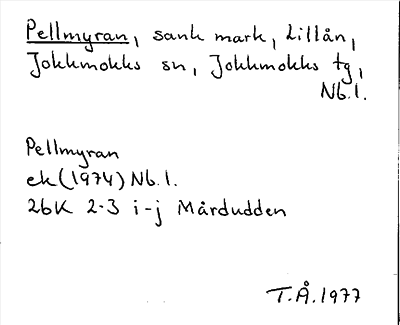 Pellmyran, sank mark, Lillån,
Jokkmokks sn, Jokkmokks tg,
Nb.l.
Pellmyran
ek (1974) Nb.l.
26K 2-3 i-j Mårdudden
T.Å.1977